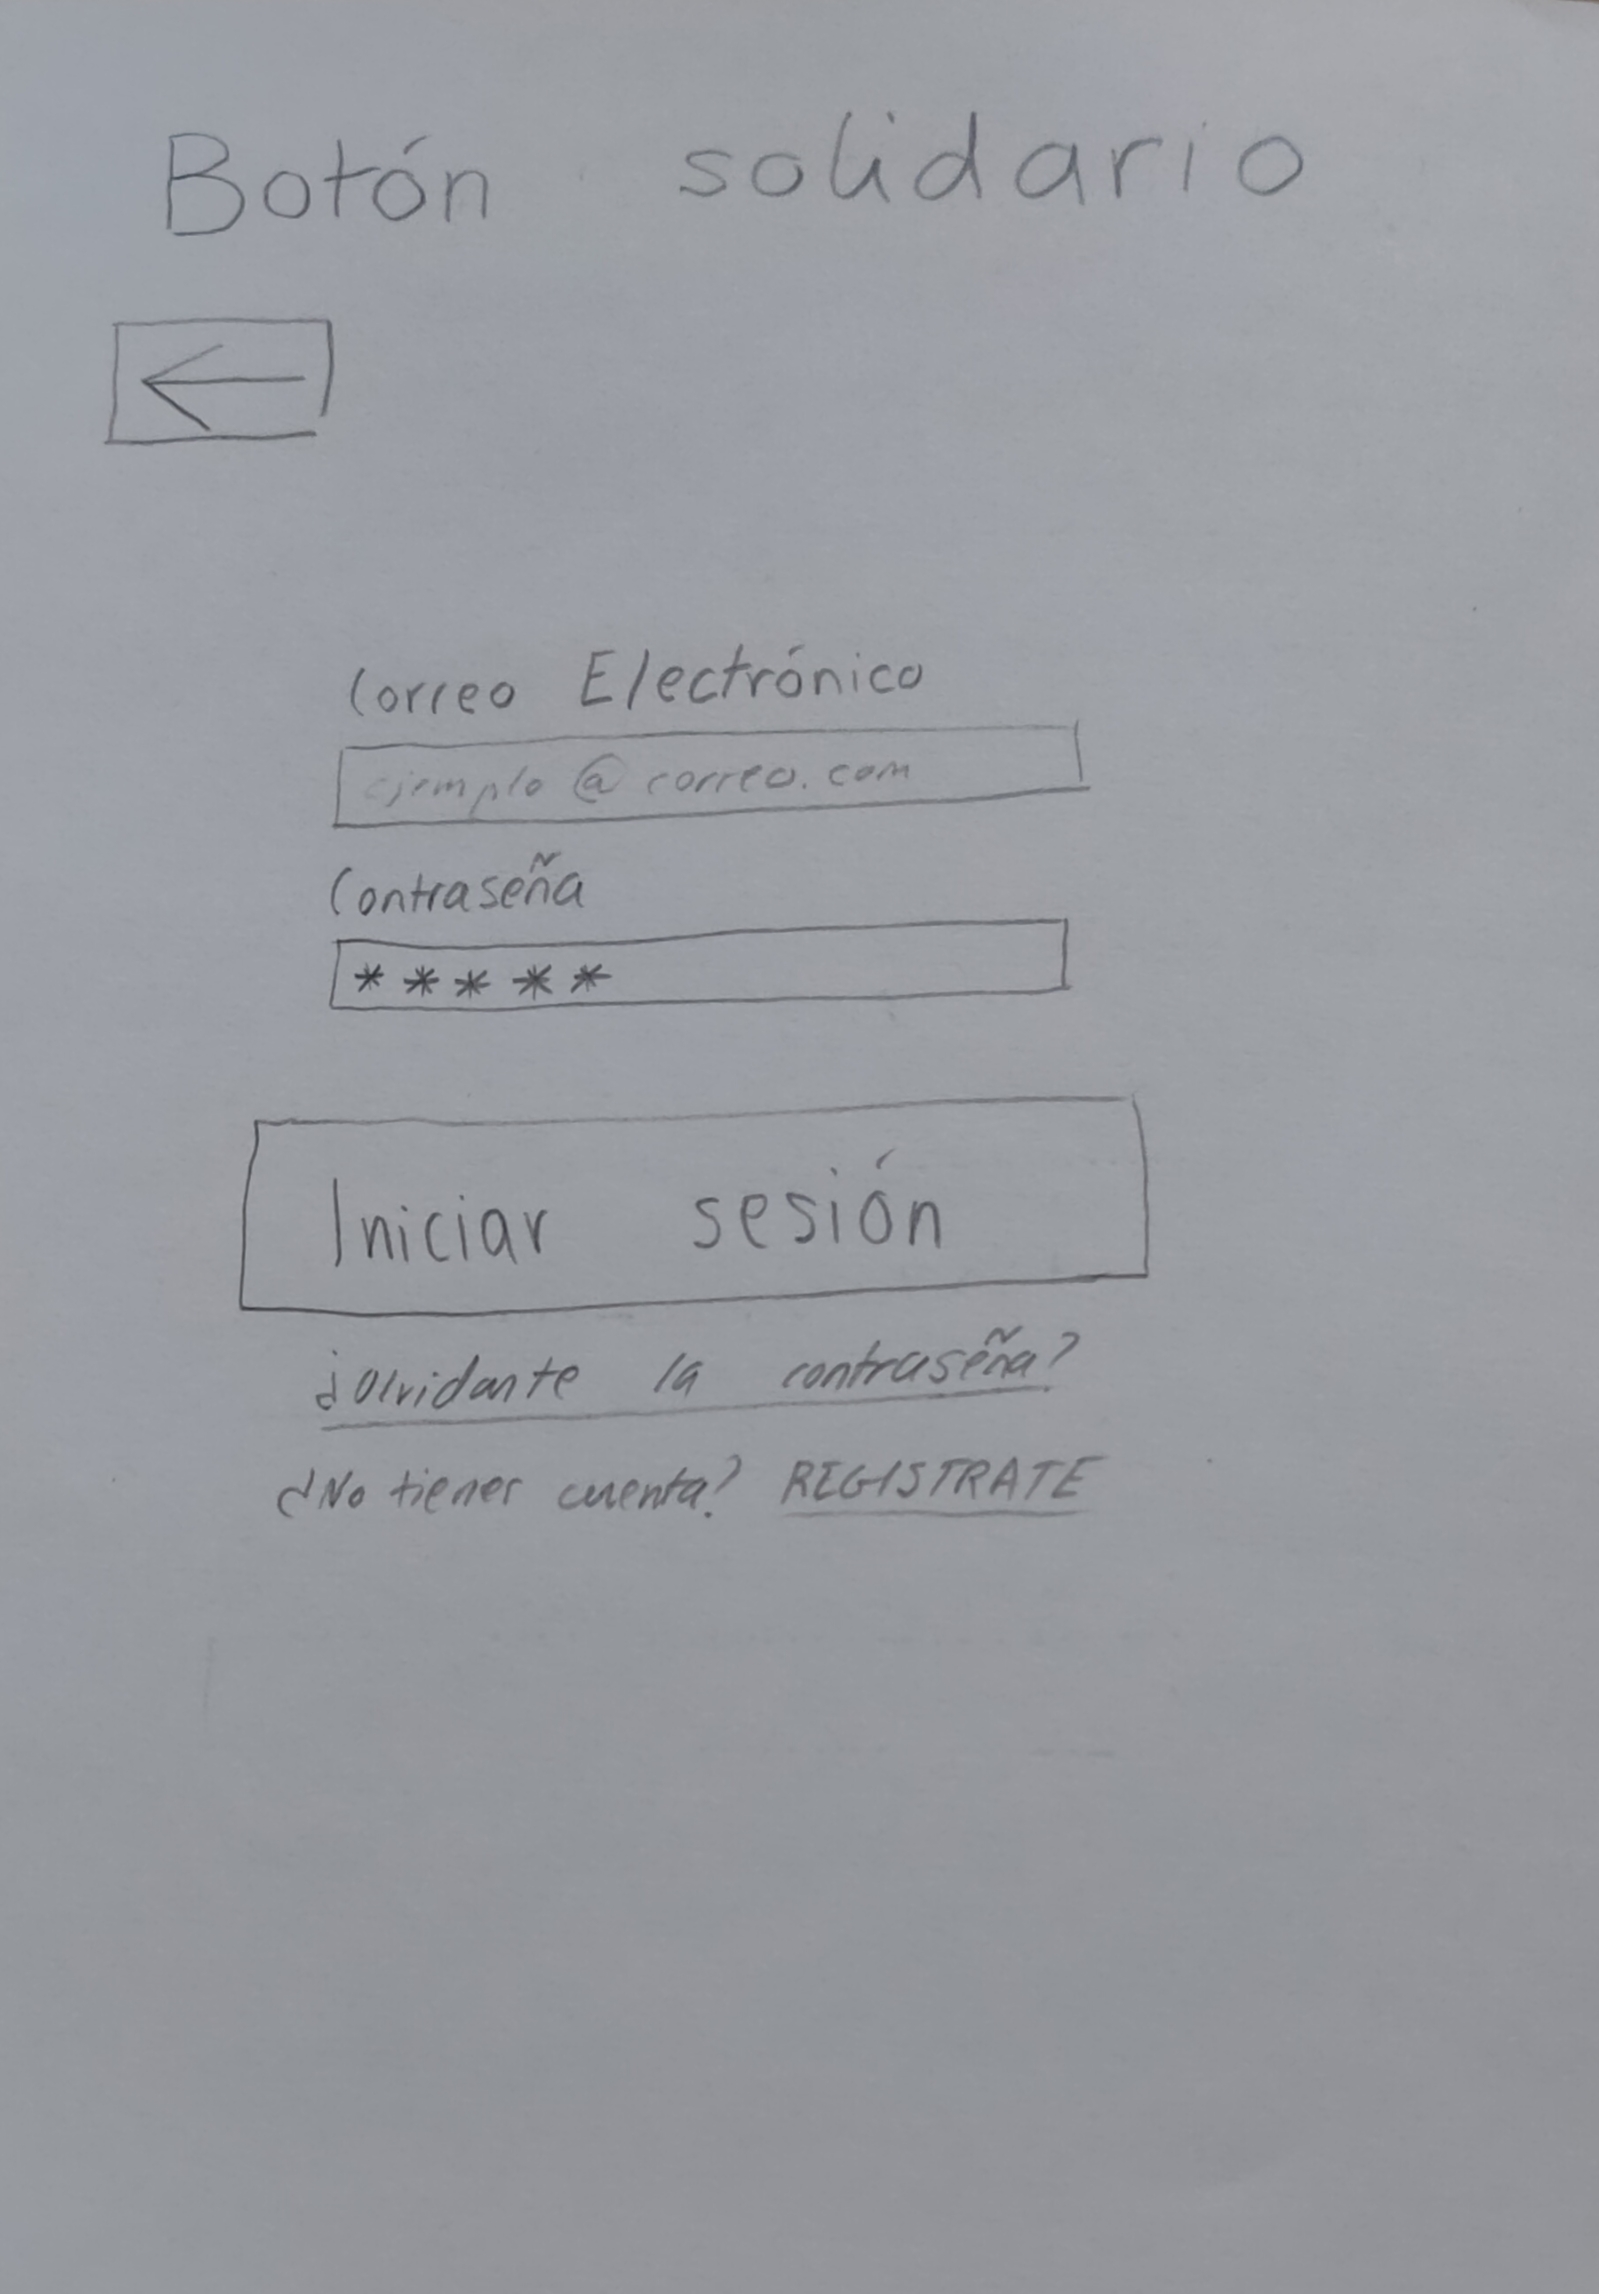 Botón solidario
Correo Electrónico
ejemplo@correo.com
Contraseña
*****
Iniciar sesión
¿Olvidante la contraseña?
¿No tienes cuenta? REGISTRATE